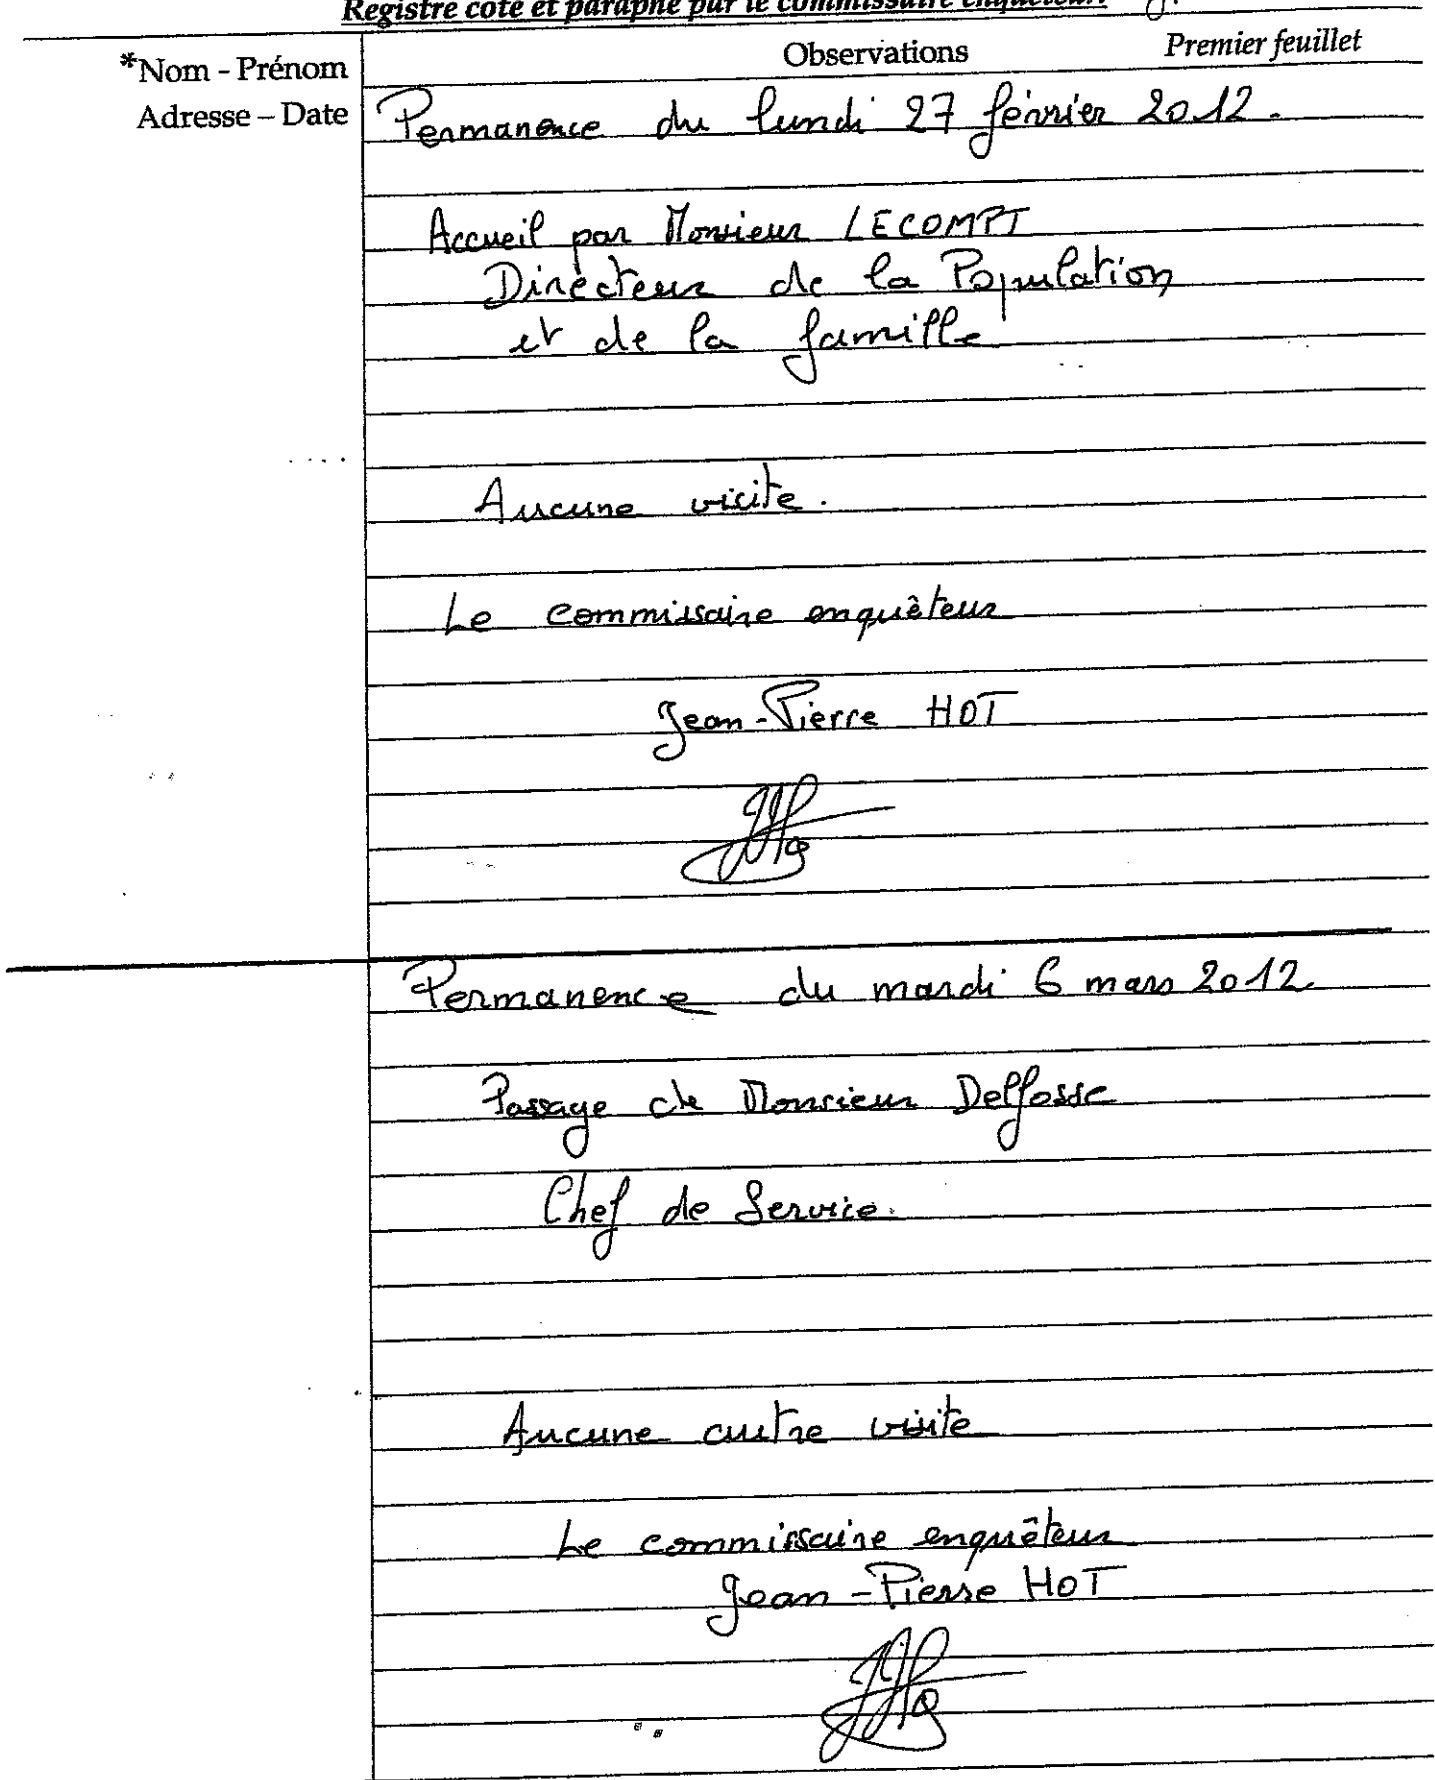 Registre coté et paraphé par le commissaire enquêteur.
*Nom - Prénom
Adresse – Date
Observations
Premier feuillet
Permanence du lundi 27 février 2012.
Accueil par Monsieur LECOMPT
Directeur de la Population
et de la famille
Aucune visite.
Le commissaire enquêteur
Jean-Pierre HOT
Permanence du mardi 6 mars 2012.
Passage de Monsieur Delfosse
Chef de Service.
Aucune autre visite
Le commissaire enquêteur
Jean-Pierre HOT